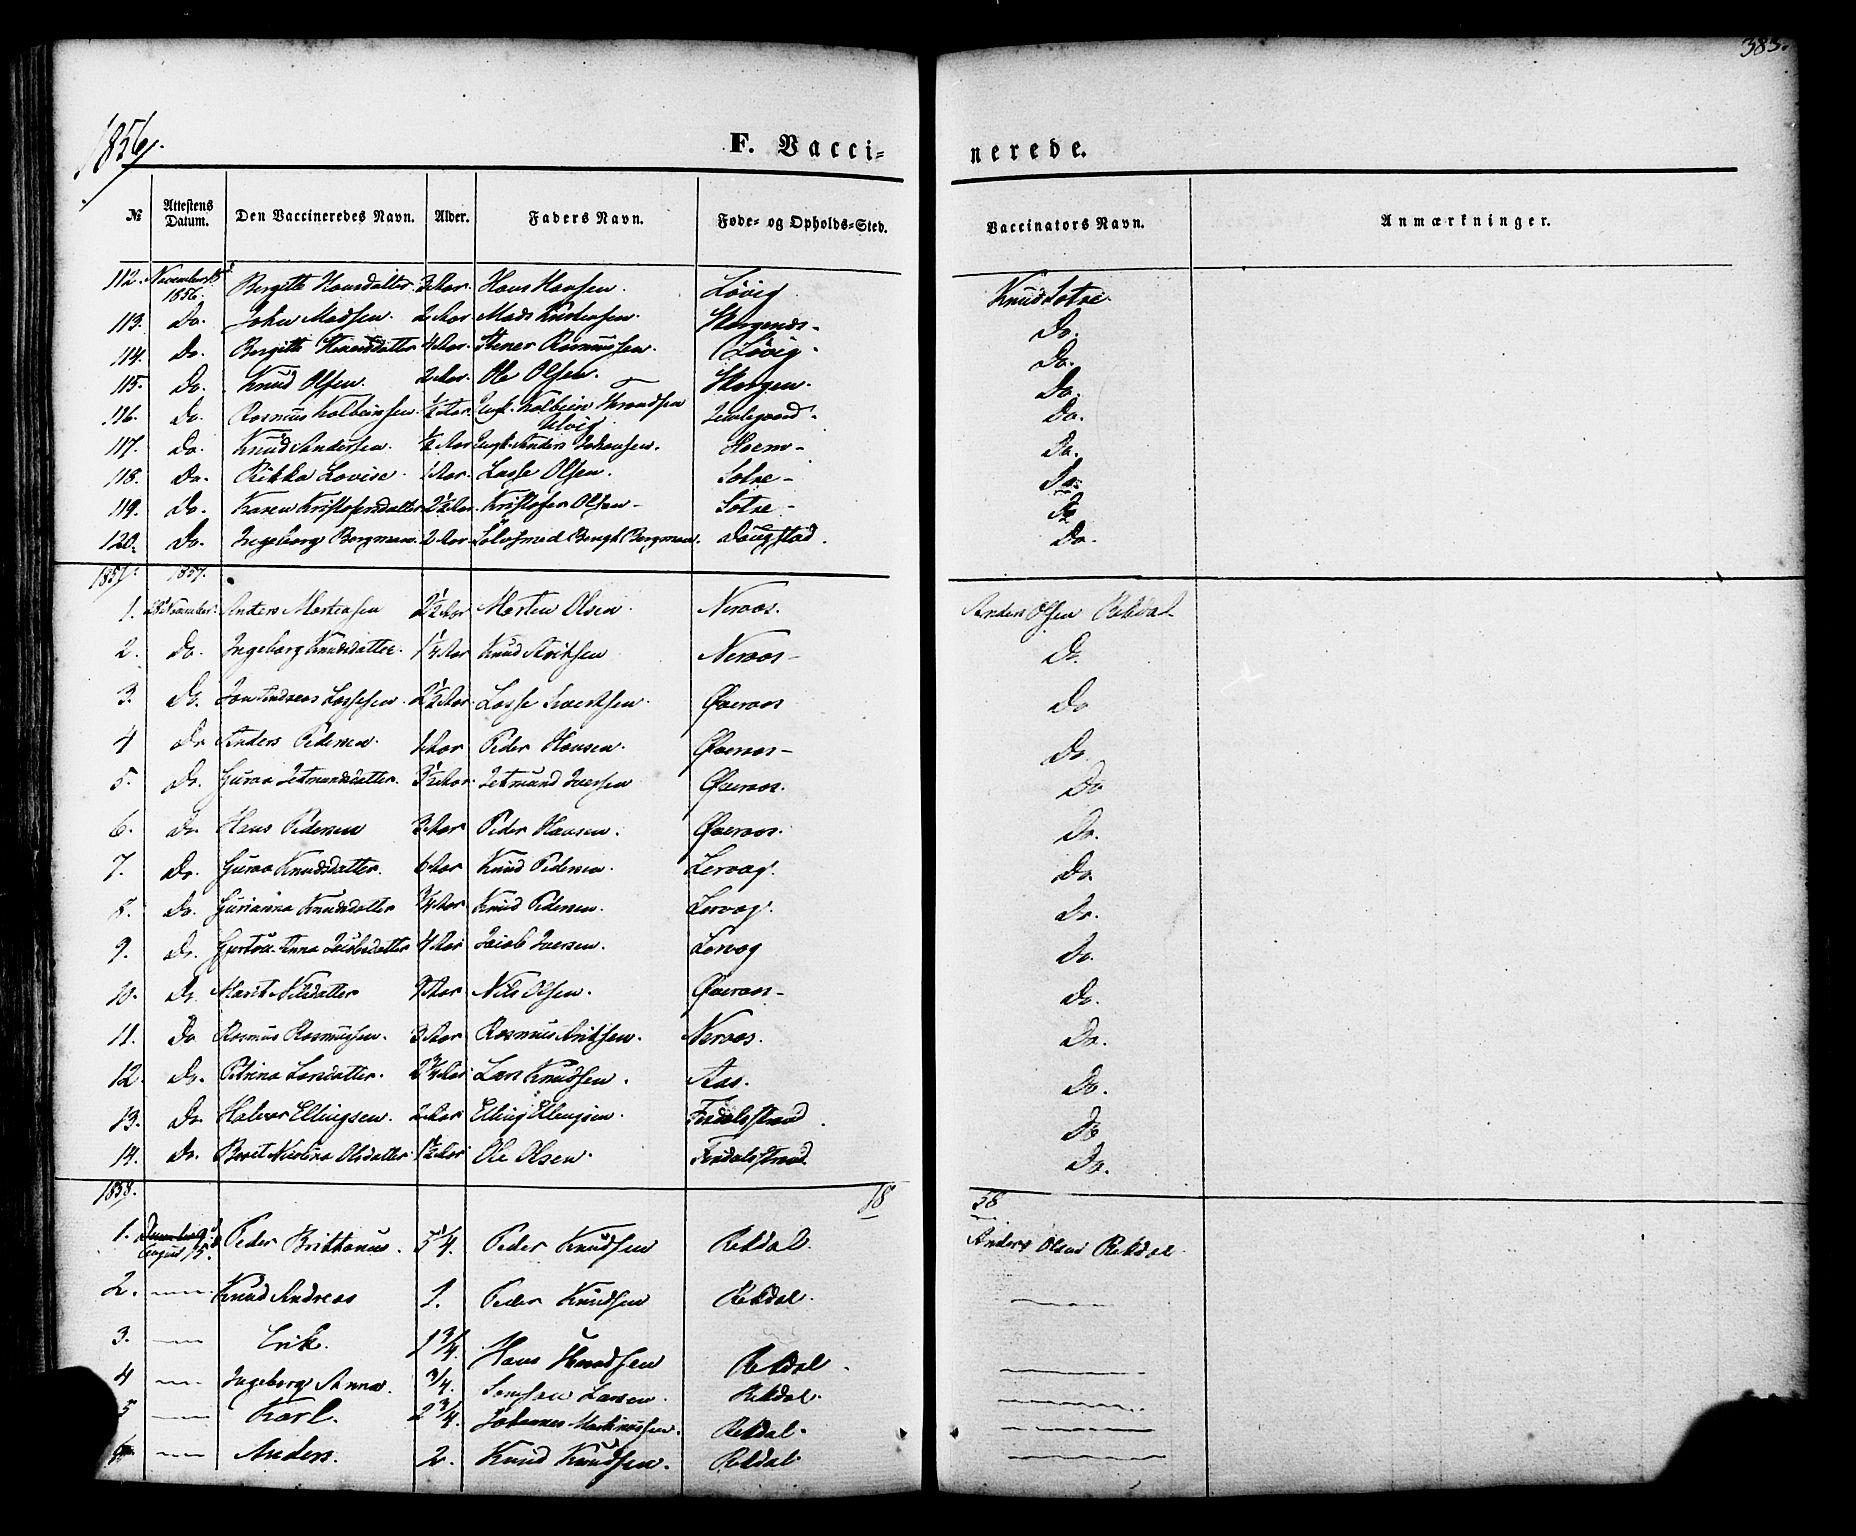 385.
1856.
F. Vacci-
nerede.
№ Attestens Datum. Den Vaccineredes Navn. Alder. Faders Navn. Føde- og Opholds-Sted. Vaccinators Navn. Anmærkninger.
112. November 1856. Bergitte Hansdatter 3 Aar. Hans Hansen. Løvig Knud Sotne.
113. Do. John Madsen. 2 Aar Mads Do.
114. Do. Bergitte 4 Aar. Stener Rasmussen. Løvig. Do.
115. Do. Knud Olsen. 2 Aar. Ole Olsen. Skorgen. Do.
116. Do. Rasmus Kolbeinsen ½ Aar Ungk. Kolbein Do.
117. Do. Knud Andersen. ½ Aar Ungk. Anders Johansen. Hoem- Do.
118. Do. Rikka Lovise. 1 Aar. Lasse Olsen. Sotne- Do.
119. Do. Karen Kristofersdatter 2½ Aar. Kristofer Olsen- Sotne- Do
120. Do. Ingeborg Bergman 2 Aar Sølvsmed Bengt Bergman. Daugstad. Do.
1857. 1857.
1. Anders Mortensen 2½ Aar Morten Olsen. Neraas. Anders Olsen Rekdal
2. Do. Ingeborg Knudsdatter. 1¼ Aar Knud Eriksen Neraas- Do.
3. Do. Jon Andreas Lassesen. 2½ Aar. Lasse Øveraas Do
4 Do Anders Pedersen. 1 Aar Peder Hansen. Øveraas- Do.
5. Do. Guroa Zetmundsdatter. 3½ Aar. Zetmund Iversen Øveraas. Do
6. Do. Hans Pedersen 3 Aar Peder Hansen. Øveraas. Do.
7. Do. Guroa Knudsdatter. 6 Aar Knud Pedersen. Lervag. Do.
8. Do. Gurianna Knudsdatter ¾ Aar Knud Pedersen. Lervag. Do.
9. Do. Anna Jacobsdatter 4 Aar Jacob Iversen. Lervag Do.
10. Do. Marit Nilsdatter Aar Nils Olsen. Øveraas- Do.
11. Do Rasmus Rasmussen. 3 Aar Rasmus Eriksen. Neraas. Do.
12. Do. Petrina Larsdatter. 2¾ Aar Lars Knudsen. Aas. Do.
13. Do Halvor Ellingsen. 2 Aar Elling Ellingsen. Do
14. Do. Beret Nicolina Olsdatter 1½ Aar Ole Olsen. Do.
1858. 18 58
1. August 15. Peder Brithanus. 5¼. Peder Knudsen Rekdal. Anders Olsen Rekdal.
2. Knud Andreas 1. Peder Knudsen Rekdal.
3. Erik. 1¾. Hans Knudsen Rekdal.
4 Ingeborg Anna. ¾. Larsen. Rekdal.
5 Karl. 2¾. Johannes Martinussen. Rekdal.
6 Anders. 2. Knud Knudsen. Rekdal